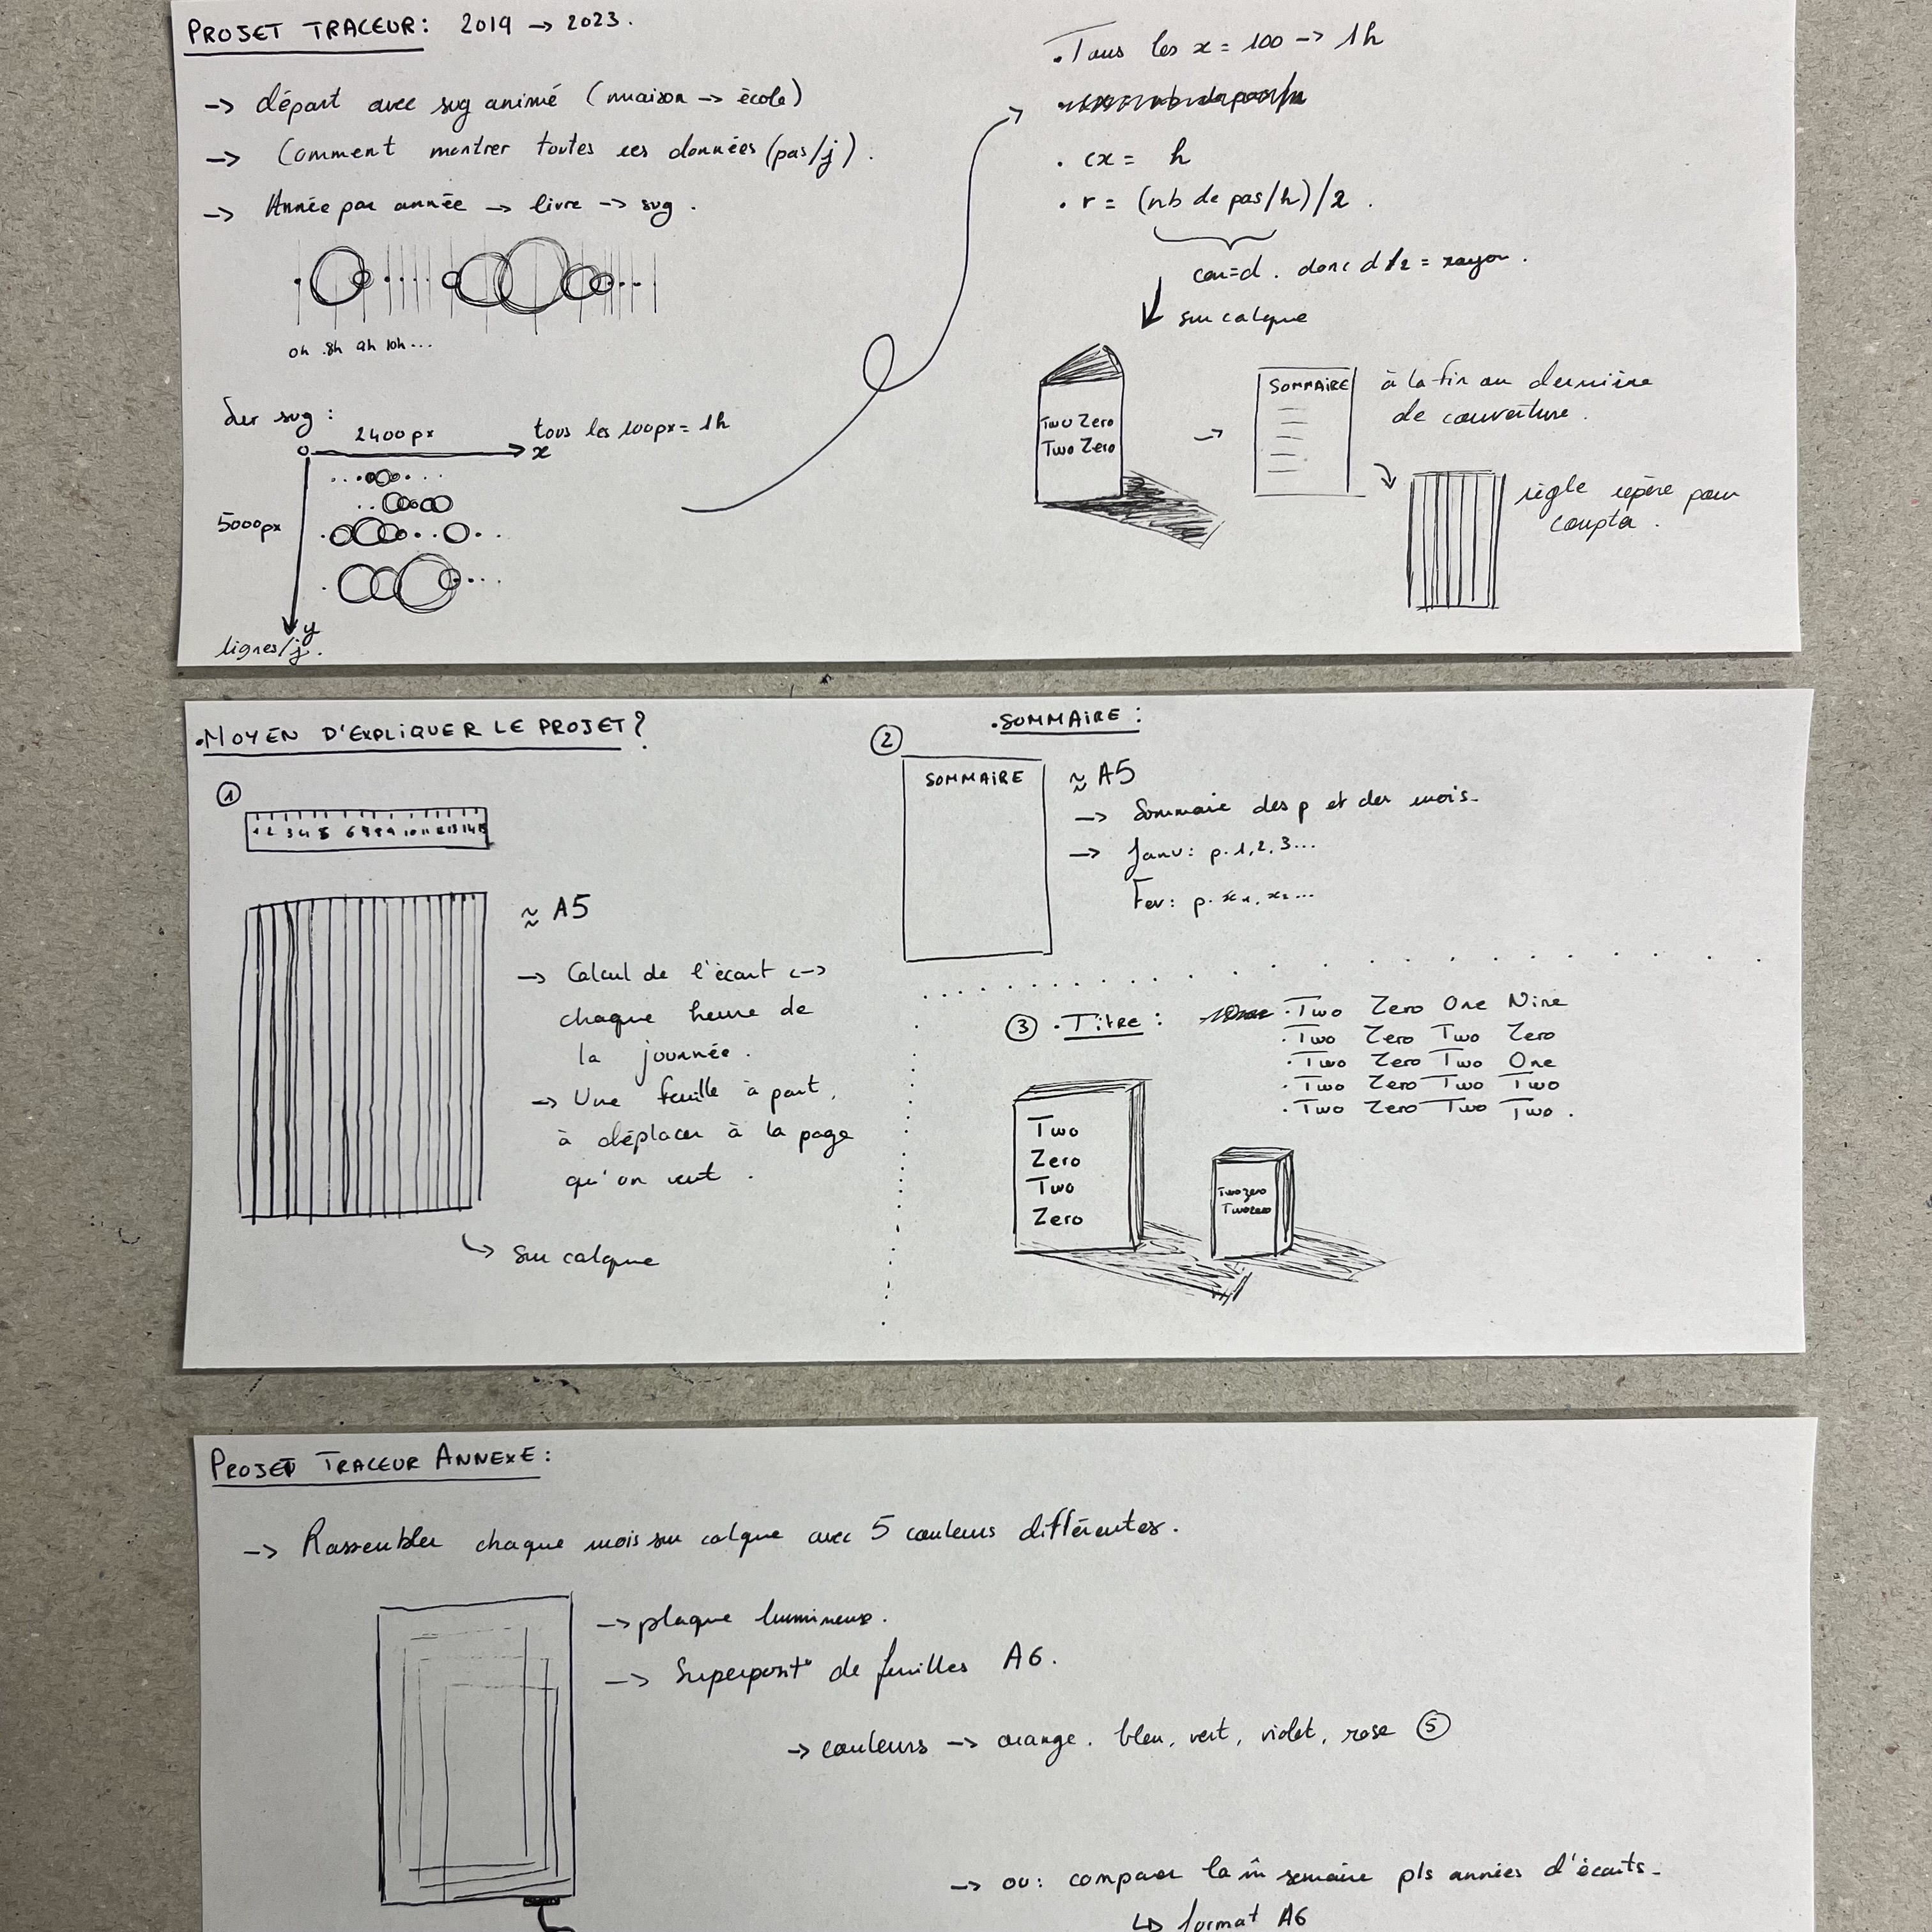 PROJET TRACEUR: 2019 → 2023.
→ départ avec svg animé (maison → école)
→ Comment montrer toutes ces données (pas/j).
→ Année par année → livre → svg.
0h 8h 9h 10h...
1er svg:
2400px
tous les 100px = 1h
0
x
5000px
y
lignes/j.
.Tous les x = 100 → 1h
. cx = h
. r = (nb de pas/h)/2.
car = d. donc d/2 = rayon.
sur calque
Two Zero
Two Zero
→
SOMMAIRE
à la fin ou dernière
de couverture.
règle repère pour
compter.
.MOYEN D'EXPLIQUER LE PROJET?
1
1 2 3 4 5 6 7 8 9 10 11 12 13 14 15
≈ A5
→ Calcul de l'écart <->
chaque heure de
la journée.
→ Une feuille à part,
à déplacer à la page
qu'on veut.
sur calque
.SOMMAIRE:
2
SOMMAIRE
≈ A5
→ Sommaire des p et des mois.
→ Janv: p.1,2,3...
Fev: p. x1, x2...
3 . Titre:
.Two Zero One Nine
.Two Zero Two Zero
.Two Zero Two One
.Two Zero Two Two
.Two Zero Two Two.
Two
Zero
Two
Zero
Two zero
Two zero
PROJET TRACEUR ANNEXE:
→ Rassembler chaque mois sur calque avec 5 couleurs différentes.
→ plaque lumineuse.
→ Superposit° de feuilles A6.
→ couleurs → orange. bleu, vert, violet, rose 5
→ ou: comparer la m̂ semaine pls années d'écarts.
↳ format A6